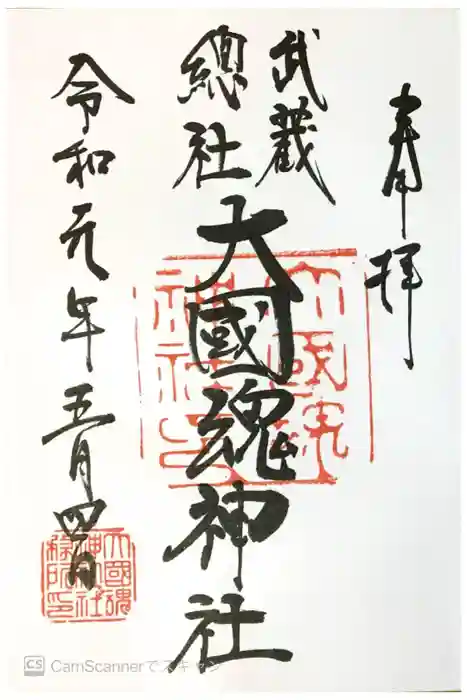 奉拝
武蔵
總社
大國魂神社
令和元年五月四日
大國魂神社印
大國魂
神社
CS CamScannerでスキャン